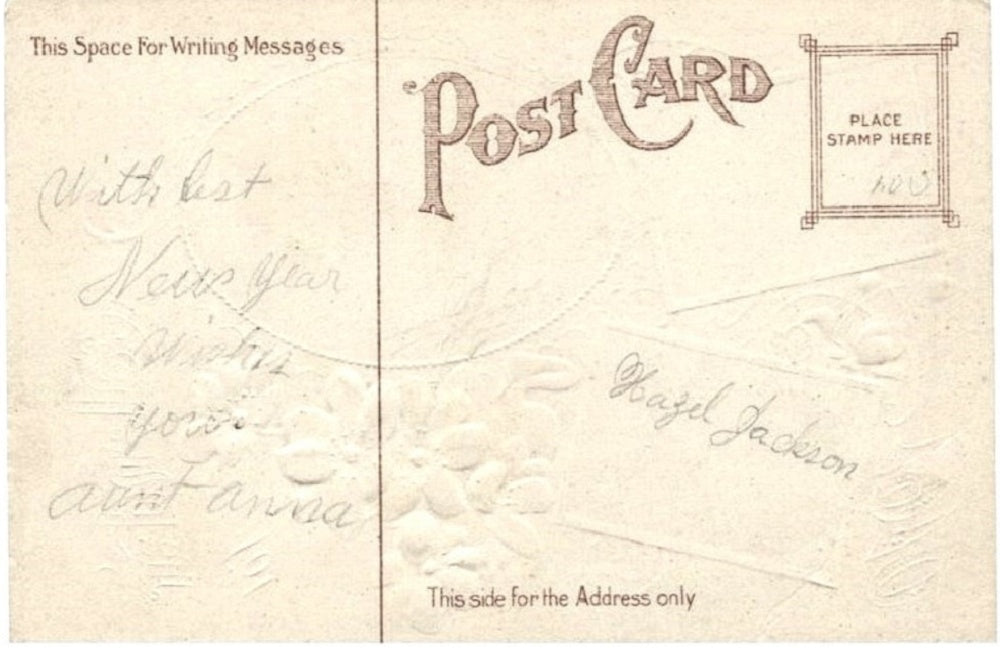 This Space For Writing Messages
POST CARD
PLACE
STAMP HERE
With best
New Year
Wishes
yours
aunt anna
Hazel Jackson
This side for the Address only